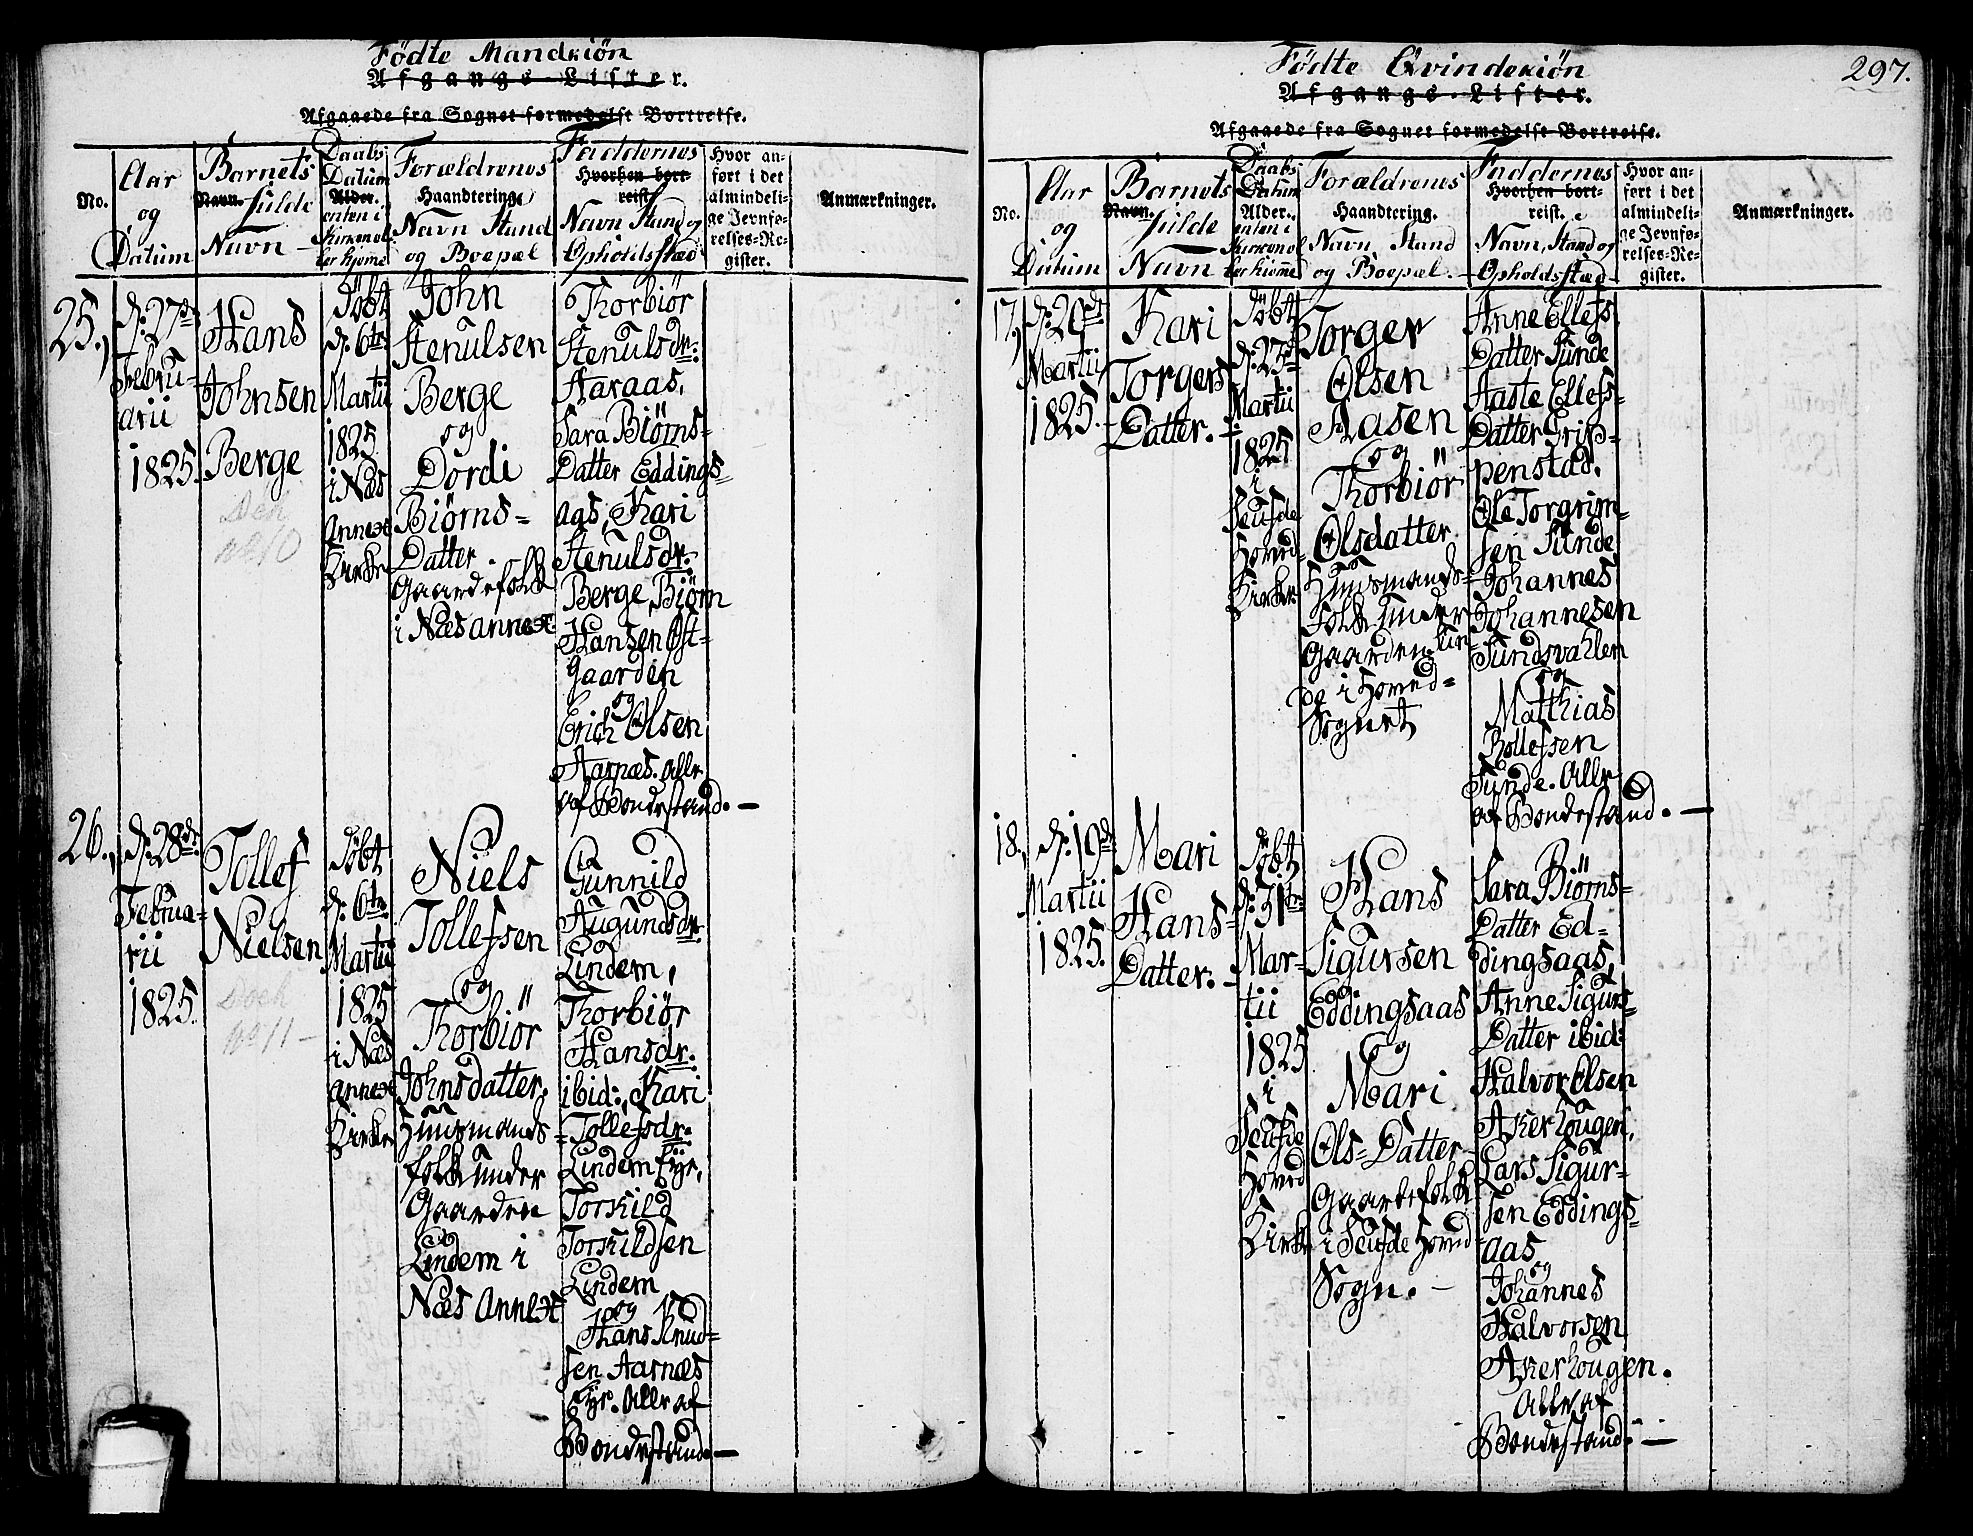 Födte Mandkiön
Afgangs-Lister.
Afgaaede fra Sognet formedelst Bortreise.
No.
Aar
og
Datum
Barnets
Navn. fulde
Navn
Daabs
Datum
Alder.
enten i
Kirken el
ler hjeme
Forældrenes
Haandtering
Navn Stand
og Boepæl
Faddernes
Hvorhen bort-
reist
Navn Stand og
Opholdsstæd
Hvor an-
ført i det
almindeli-
ge Jevnfø-
relses-Re-
gister.
Anmærkninger.
25.,
d: 27de
Febru-
arii
1825.
Hans
Johnsen
Berge
Døbt
d: 6te
Martii
1825
i Næs
Annex
Kirke
John
Stenulsen
Berge
og
Dordi
Biörns=
Datter.
Gaardefolk
i Næs annex.
Thorbiör
Stenulsdr:
Haraas,
Sara Biörns=
Datter Eddings=
aas, Kari
Stenulsdr:
Berge, Biörn
Hansen Øst-
gaarden
og
Erich Olsen
Aarnæs. Alle
af Bondestand. —
26.,
d: 28de
Februa-
rii
1825.
Tollef
Nielsen
Døbt
d: 6te
Martii
1825
i Næs
annex
Kirke
Niels
Tollefsen
og
Thorbiör
Johnsdatter,
Huusmands-
folk under
Gaarden
Lindem i
Næs Annext
Gunnild
Augundsdr:
Lindem,
Thorbiör
Hansdr:
ibid:, Kari
Tollefsdr:
Lindem Eye,
Torskild
Torskildsen
Lindem
og
Hans Knud=
sen Aarnæs
Eye. Alle af
Bondestand. —
297.
Födte Qvindekiön
Afgangs-Lister.
Afgaaede fra Sognet formedelst Bortreise.
No.
Aar
og
Datum
Barnets
Navn.
fulde
Navn
Daabs
Datum
Alder.
enten i
Kirken el
ler hieme
Forældrenes
Haandtering.
Navn, Stand
og Boepæl. —
Faddernes
Hvorhen bort-
reist.
Navn, Stand og
Opholdsstæd
Hvor an-
ført i det
almindeli-
ge Jevnfø-
relses-Re-
gister.
Anmærkninger.
17,
d: 20de
Martii
1825. -
Kari
Torgers
Datter. -
Døbt
d: 27de
Martii
1825
i
Seufde
Hoved-
Kirke
Torger
Olsen
Aasen
og
Thorbiör
Olsdatter
Huusmands-
Folk under
Gaarden
i Hoved=
Sognet
Anne Ellefs
Datter Sunde
Aaste Ellefs-
Datter Grip-
penstad,
Ole Torgrim-
sen Sunde
Johannes
Johannesen
Sundsvahlen
og
Matthias
Rollefsen
Sunde. Alle
af Bondestand. —
18.,
d: 19de
Martii
1825.
Mari
Hans-
Datter. -
Døbt
d: 31te
Mar-
tii
1825
i
Seufde
Hoved
Kirke
Hans
Sigursen
Eddingsaas
og
Mari
Ols=Datter
Gaardefolk
i Seufde Hoved-
Sogn. —
Sara Biörns=
Datter Ed-
dingsaas,
Anne Sigurs-
Datter ibid:
Halvor Olsen
Akerhougen,
Lars Sigur-
sen Eddings-
aas
og
Johannes
Halvorsen
Akerhougen.
Alle af
Bondestand. —